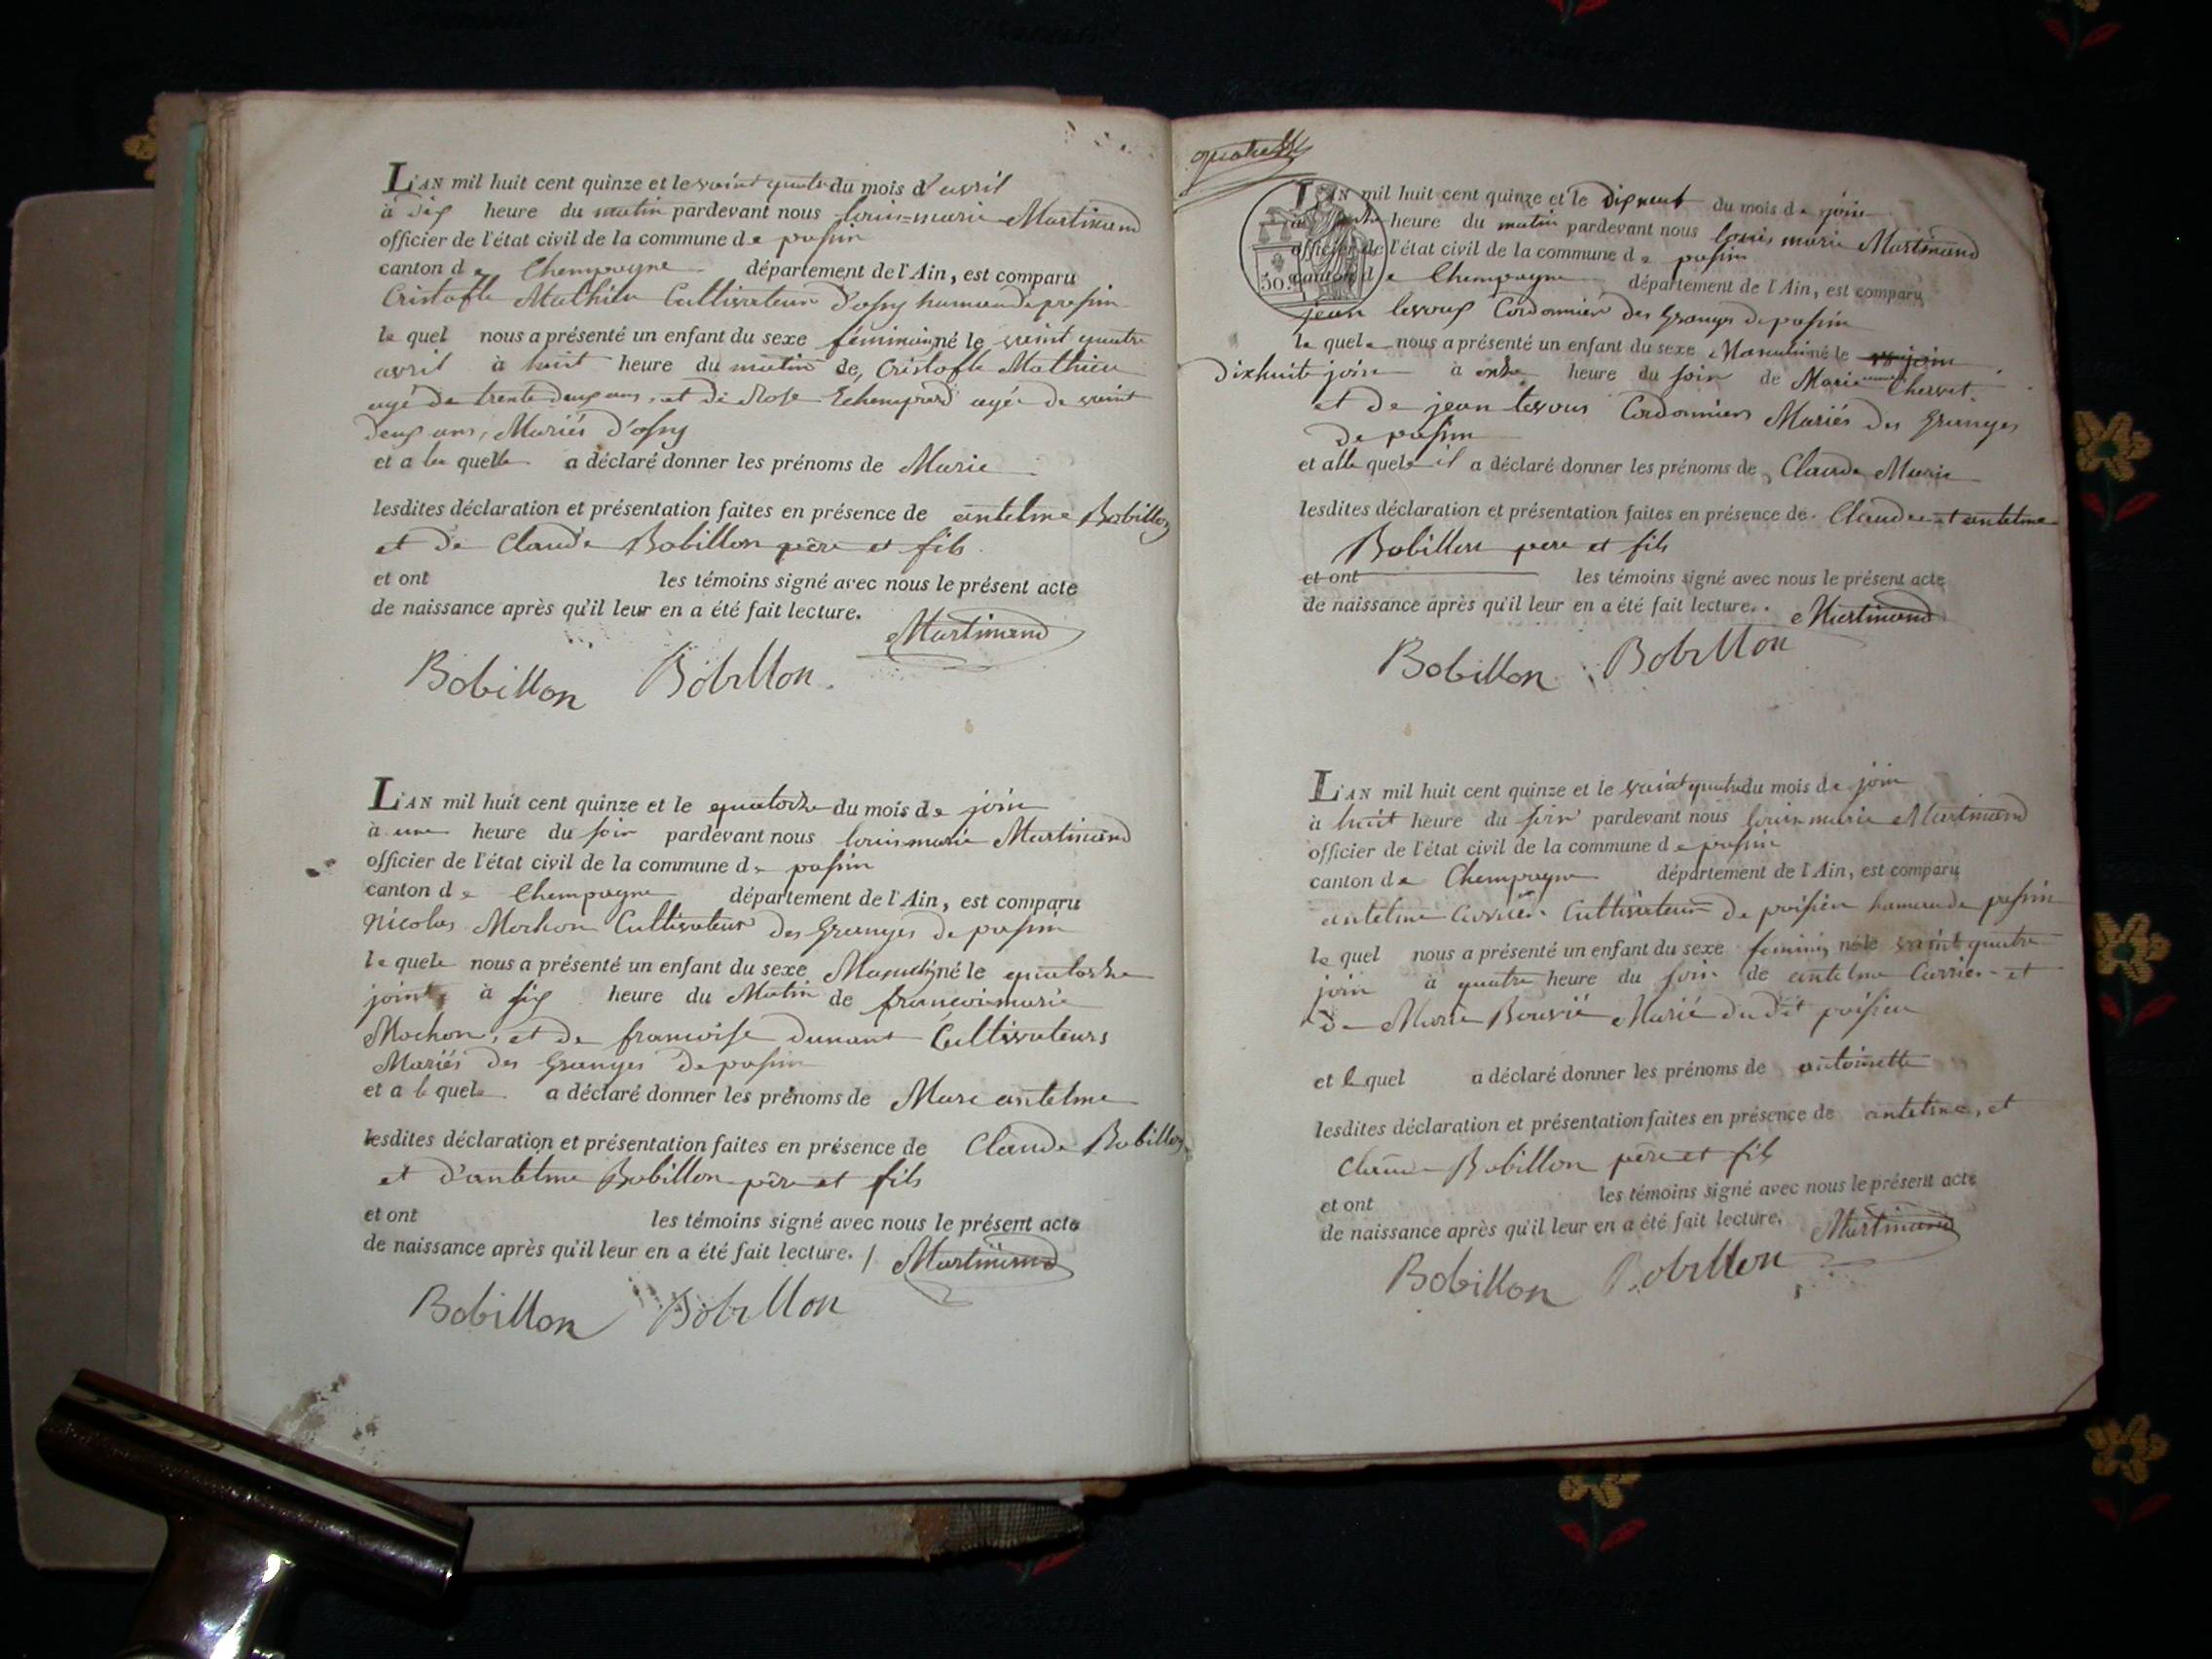 L'AN mil huit cent quinze et le vaint quatre du mois d'avril
à dix heure du matin pardevant nous louis=marie Martinand
officier de l'état civil de la commune de passin
canton de Chempagne département de l'Ain, est comparu
Cristofle Mathieu Cultivateur d'ossy hameau de passin
le quel nous a présenté un enfant du sexe féminin né le vaint quatre
avril à huit heure du matin de, Cristofle Mathieu
agé de trente deux ans, et de Rose agée de vaint
deux ans, Mariés d'ossy
et a la quelle a déclaré donner les prénoms de Marie
lesdites déclaration et présentation faites en présence de antelme Bobillon
et de Claude Bobillon père et fils
et ont les témoins signé avec nous le présent acte
de naissance après qu'il leur en a été fait lecture.
Martinand
Bobillon Bobillon
L'AN mil huit cent quinze et le quatorze du mois de join
à une heure du soir pardevant nous louis marie Martinand
officier de l'état civil de la commune de passin
canton de Chempagne département de l'Ain, est comparu
Nicolas Mochon Cultivateur des Granges de passin
le quele nous a présenté un enfant du sexe Masculin né le quatorze
join à six heure du Matin de francois marie
Mochon, et de francoise dunant Cultivateurs
Mariés des Granges de passin
et a le quele a déclaré donner les prénoms de Marc antelme
lesdites déclaration et présentation faites en présence de Claude Bobillon
et d'antelme Bobillon père et fils
et ont les témoins signé avec nous le présent acte
de naissance après qu'il leur en a été fait lecture. /
Martinand
Bobillon Bobillon
quatre
L'AN mil huit cent quinze et le dixneuf du mois de join
heure du matin pardevant nous louis marie Martinand
officier de l'état civil de la commune de passin
canton de Chempagne département de l'Ain, est comparu
50
jean levoux Cordonnier des Granges de passin
le quele nous a présenté un enfant du sexe Masculin né le join
dixhuite join à onze heure du soir de Marie Chervet
et de jean levoux Cordonniers Mariés des Granges
de passin
et alle quele il a déclaré donner les prénoms de, Claude Marie
lesdites déclaration et présentation faites en présence de Claude et antelme
Bobillon pere et fils
et ont les témoins signé avec nous le présent acte
de naissance après qu'il leur en a été fait lecture.
Martinand
Bobillon Bobillon
L'AN mil huit cent quinze et le vaint quatre du mois de join
à huit heure du soir pardevant nous louis marie Martinand
officier de l'état civil de la commune de passin
canton de Chempagne département de l'Ain, est comparu
antelme Carrier Cultivateur de poisieu hameau de passin
le quel nous a présenté un enfant du sexe feminin né le vaint quatre
join à quatre heure du soir de antelme Carrier et
de Marie Bouvié Marié du dit poisieu
et le quel a déclaré donner les prénoms de antoinette
lesdites déclaration et présentation faites en présence de antelme, et
Claude Bobillon père et fils
et ont les témoins signé avec nous le présent acte
de naissance après qu'il leur en a été fait lecture.
Martinand
Bobillon Bobillon